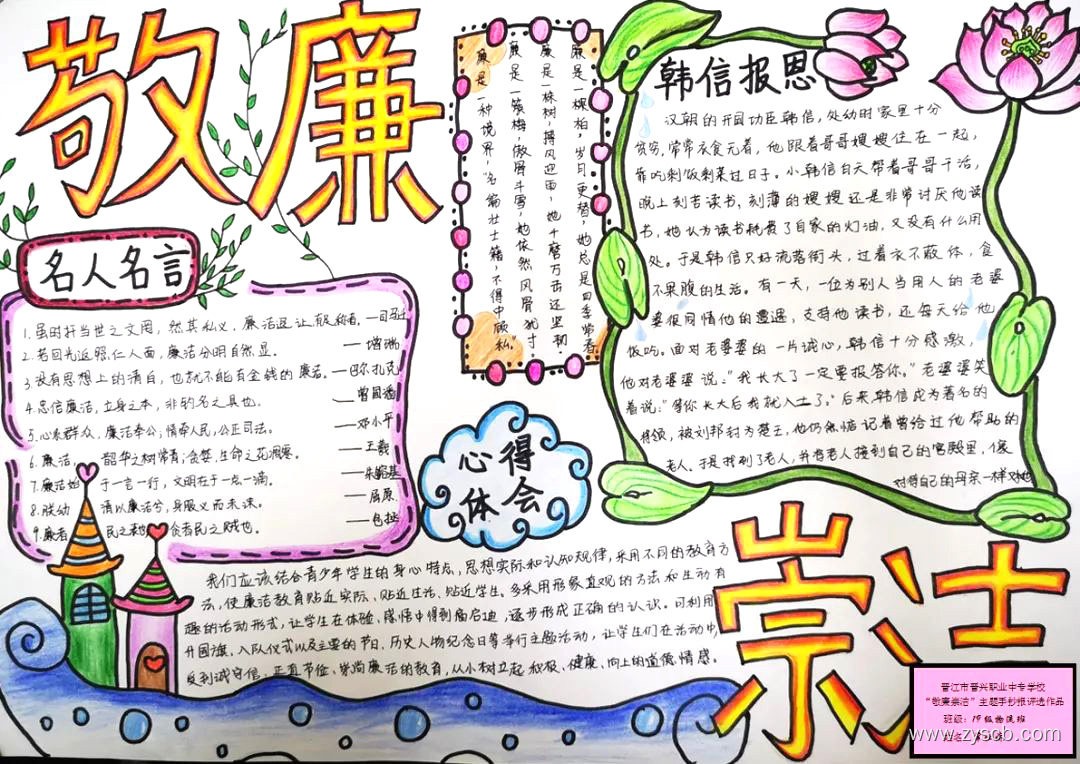 敬廉
廉是一棵柏，岁月更替，她总是四季常青
廉是一株树，搏风迎雨，她千磨万击还坚韧
廉是一簇梅，傲骨斗雪，她依然风骨犹寸
廉是一种境界，名编壮士籍，不得中顾私。
韩信报恩
汉朝的开国功臣韩信，处幼时家里十分
贫穷，常常衣食无着，他跟着哥哥嫂嫂住在一起，
靠吃剩饭剩菜过日子。小韩信白天帮着哥哥干活，
晚上刻苦读书，刻薄的嫂嫂还是非常讨厌他读
书，她认为读书耗费了自家的灯油，又没有什么用
处。于是韩信只好流落街头，过着衣不蔽体，食
不果腹的生活。有一天，一位为别人当用人的老婆
婆很同情他的遭遇，支持他读书，还每天给他
饭吃。面对老婆婆的一片诚心，韩信十分感激，
他对老婆婆说："我长大了一定要报答你。"老婆婆笑
着说："等你长大后我就入土了。"后来韩信成为著名的
将领，被刘邦封为楚王，他仍然惦记着曾给过他帮助的
老人，于是找到了老人，并将老人接到自己的宫殿里，像
对待自己的母亲一样对她
名人名言
1.虽时扞当世之文罔，然其私义，廉洁退让，有足称者。—司马迁
2.若回光返照，仁人面，廉洁分明自然显。
3.没有思想上的清白，也就不能有金钱的廉洁。—巴尔扎克
4.忠信廉洁，立身之本，非钓名之具也。
5.心系群众，廉洁奉公；情牵人民，公正司法。 —邓小平
6.廉洁，韶华之树常青；贪婪，生命之花凋零。 —王羲
7.廉洁始于一言一行，文明在于一点一滴。
8.朕幼清以廉洁兮，身服义而未沫。 —屈原
9.廉者民之表也，贪者民之贼也。 —包拯
心得
体会
我们应该结合青少年学生的身心特点，思想实际和认知规律，采用不同的教育方
法，使廉洁教育贴近实际、贴近生活、贴近学生。多采用形象直观的方法和生动有
趣的活动形式，让学生在体验、感悟中得到启迪，逐步形成正确的认识。可利用
升国旗、入队仪式以及主要的节日、历史人物纪念日等举行主题活动，让学生们在活动中，
受到诚守信、正直节俭、崇尚廉洁的教育，从小树立起积极、健康、向上的道德情感。
崇洁
晋江市晋兴职业中专学校
"敬廉崇洁"主题手抄报评选作品
班级：19级物流班
www.zyscb.com